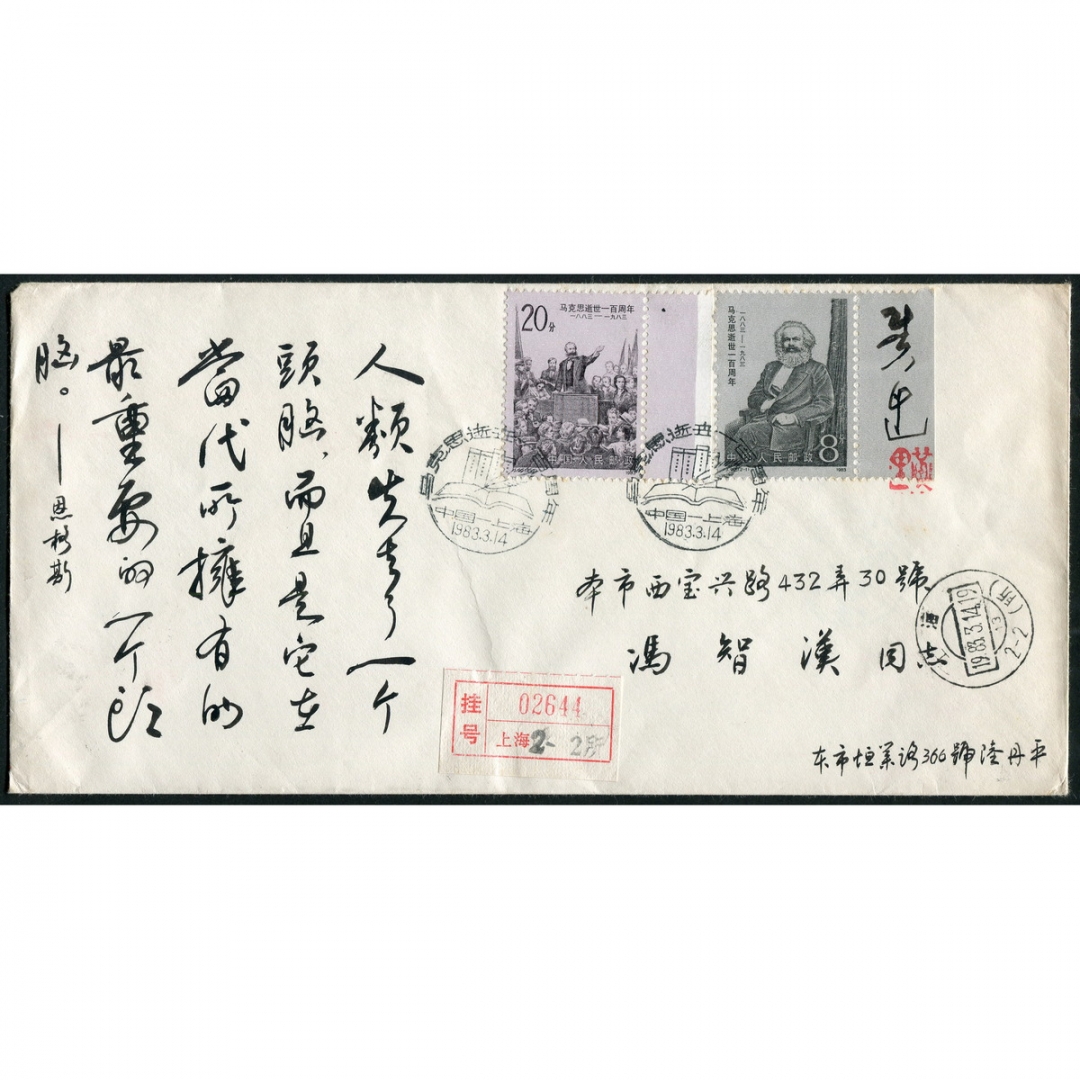 人類失去了一个
頭腦，而且是它在
當代所擁有的
最重要的一个头
脑。——恩格斯
20分
马克思逝世一百周年
一八八三—一九八三
中国人民邮政
一八八三—一九八三
马克思逝世一百周年
中国人民邮政
8分
1983
马克思逝世一百周年
中国—上海
1983.3.14
马克思逝世一百周年
中国—上海
1983.3.14
本市西宝兴路432弄30號
馮智漢同志
上海
1983.3.14.19
2-2(所)
挂号
02644
上海2-2所
本市恒業路366號陸丹平